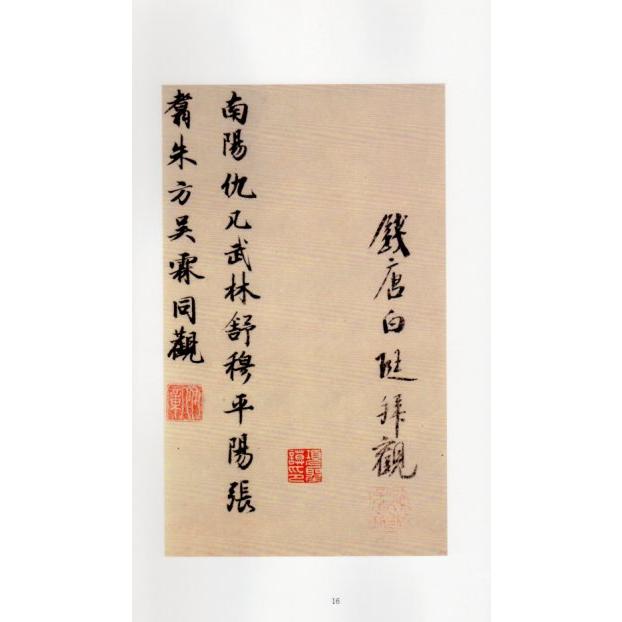 錢唐白珽拜觀
南陽仇几武林舒穆平陽張
翥朱方吳霖同觀
16